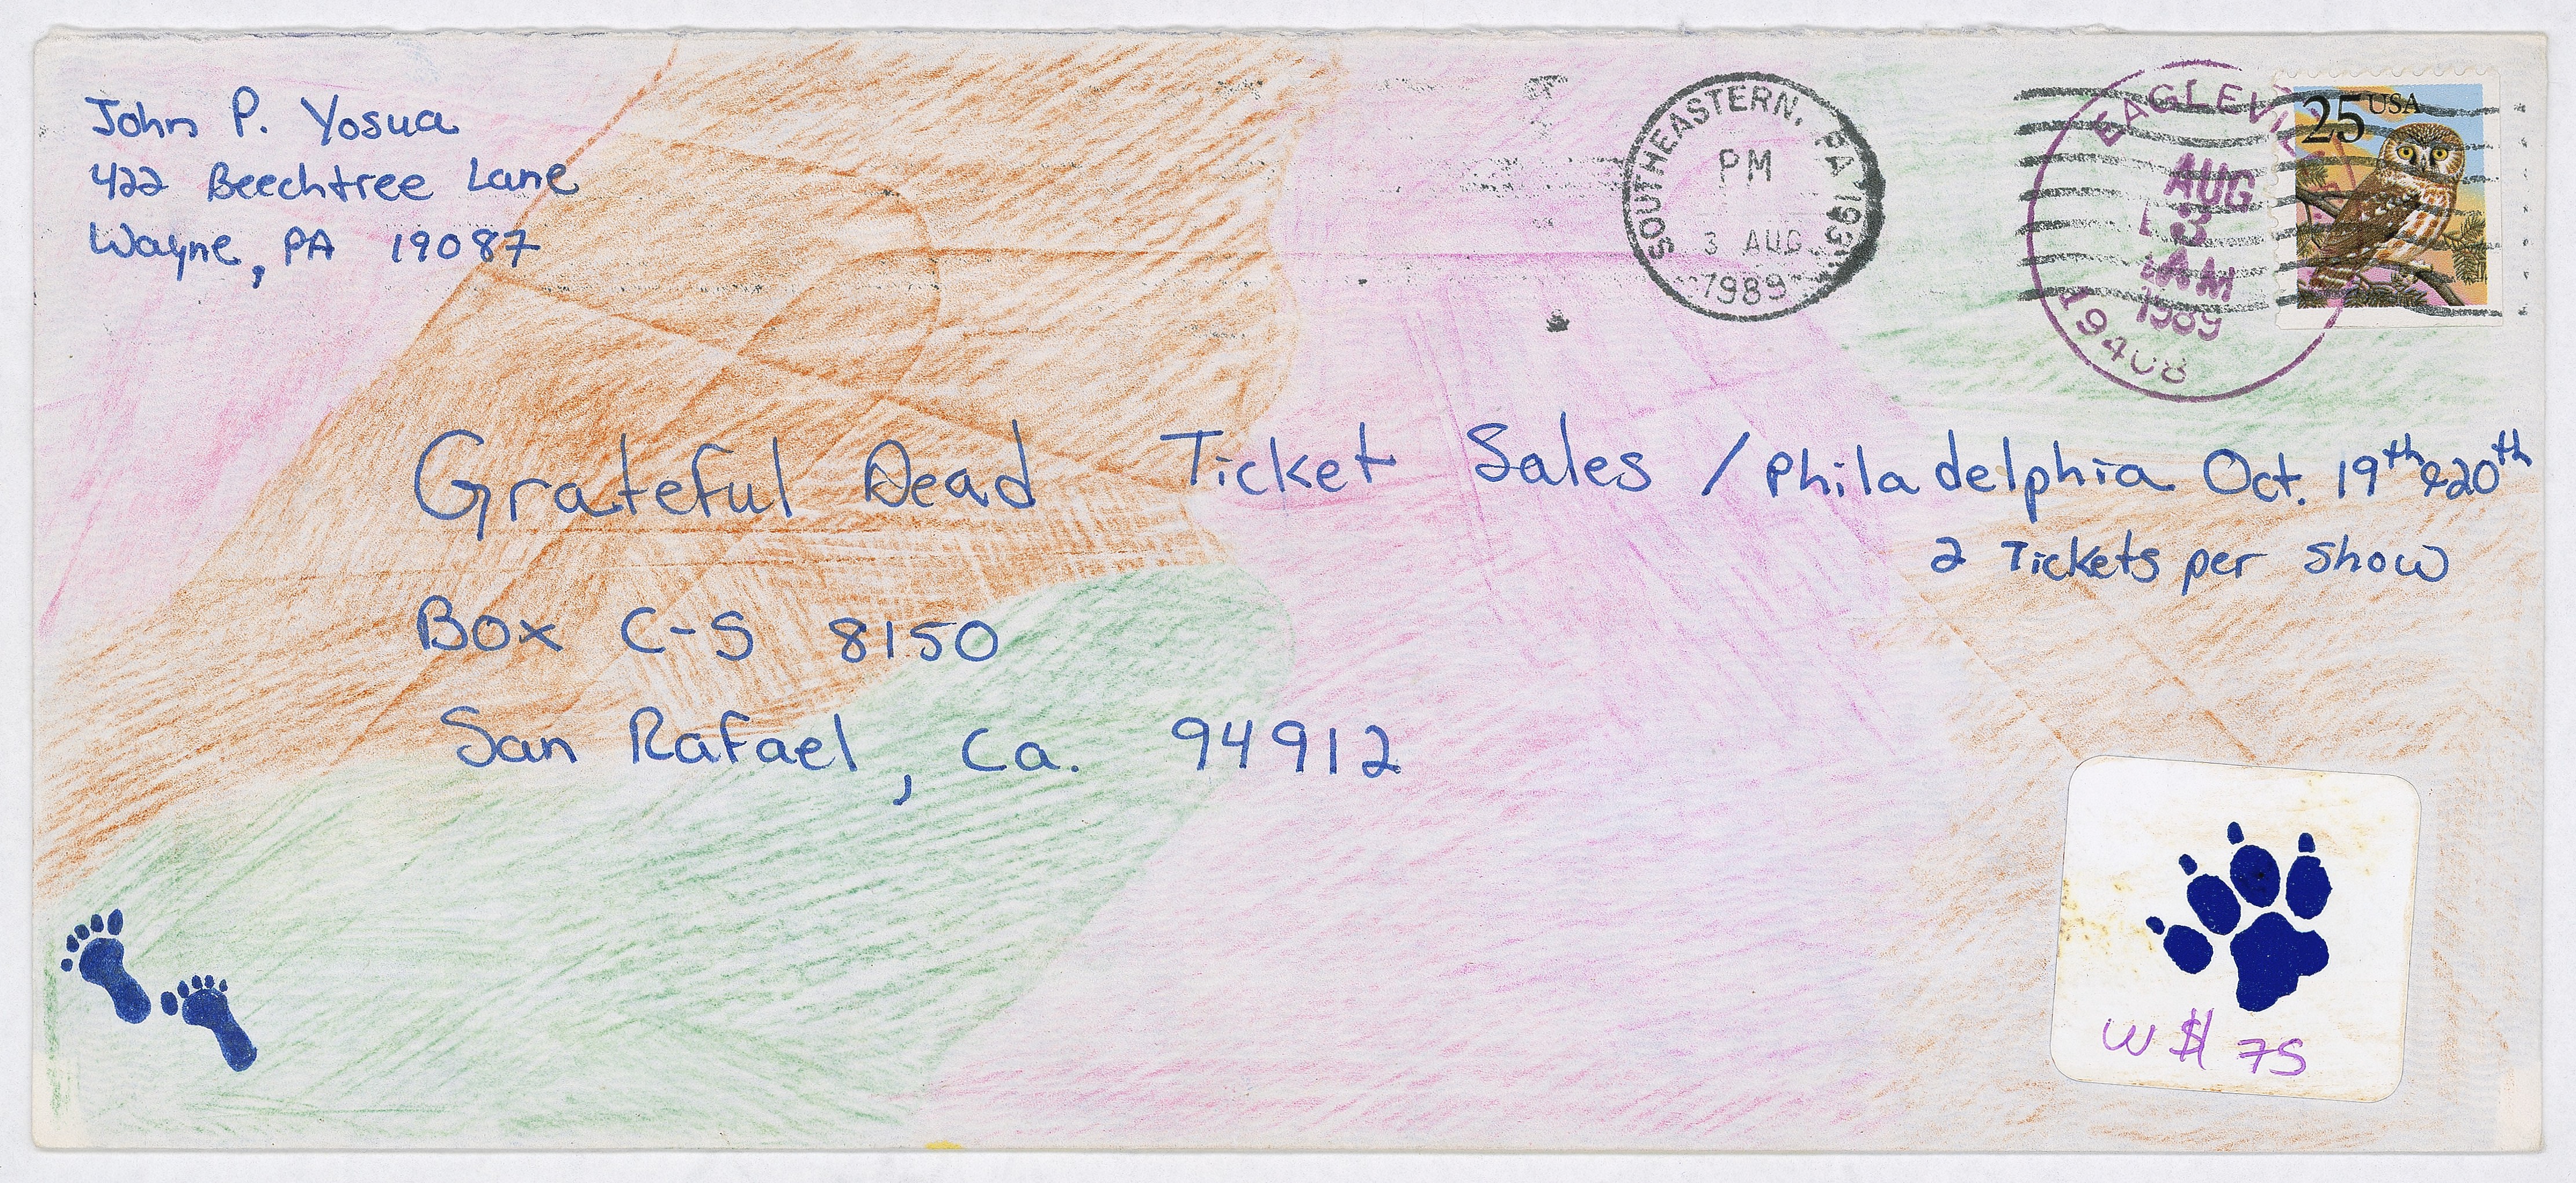 John P. Yosua
422 Beechtree Lane
Wayne, PA 19087
SOUTHEASTERN, PA 193
PM
3 AUG
1989
EAGLEVI
AUG
3
AM
1989
19408
25 USA
Grateful Dead Ticket Sales / Philadelphia Oct. 19th & 20th
2 Tickets per show
Box C-S 8150
San Rafael, Ca. 94912
W $ 75